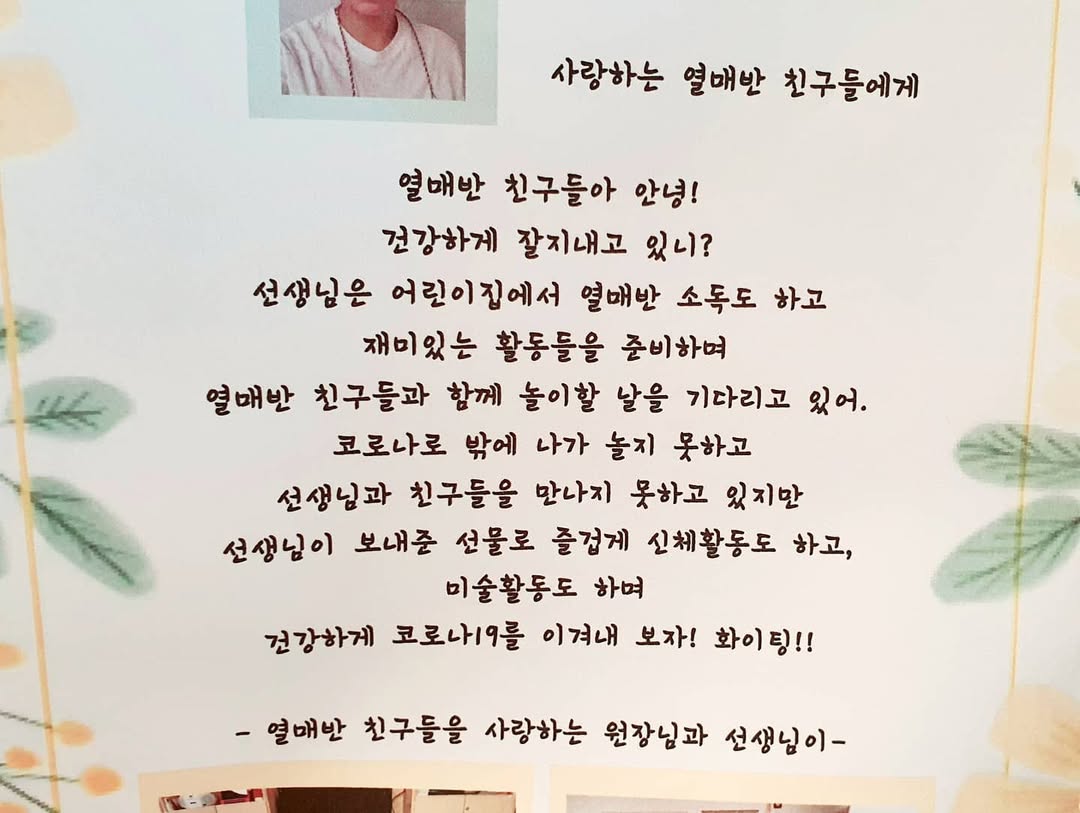 사랑하는 열매반 친구들에게
열매반 친구들아 안녕!
건강하게 잘지내고 있니?
선생님은 어린이집에서 열매반 소독도 하고
재미있는 활동들을 준비하며
열매반 친구들과 함께 놀이할 날을 기다리고 있어.
코로나로 밖에 나가 놀지 못하고
선생님과 친구들을 만나지 못하고 있지만
선생님이 보내준 선물로 즐겁게 신체활동도 하고,
미술활동도 하며
건강하게 코로나19를 이겨내 보자! 화이팅!!
- 열매반 친구들을 사랑하는 원장님과 선생님이-